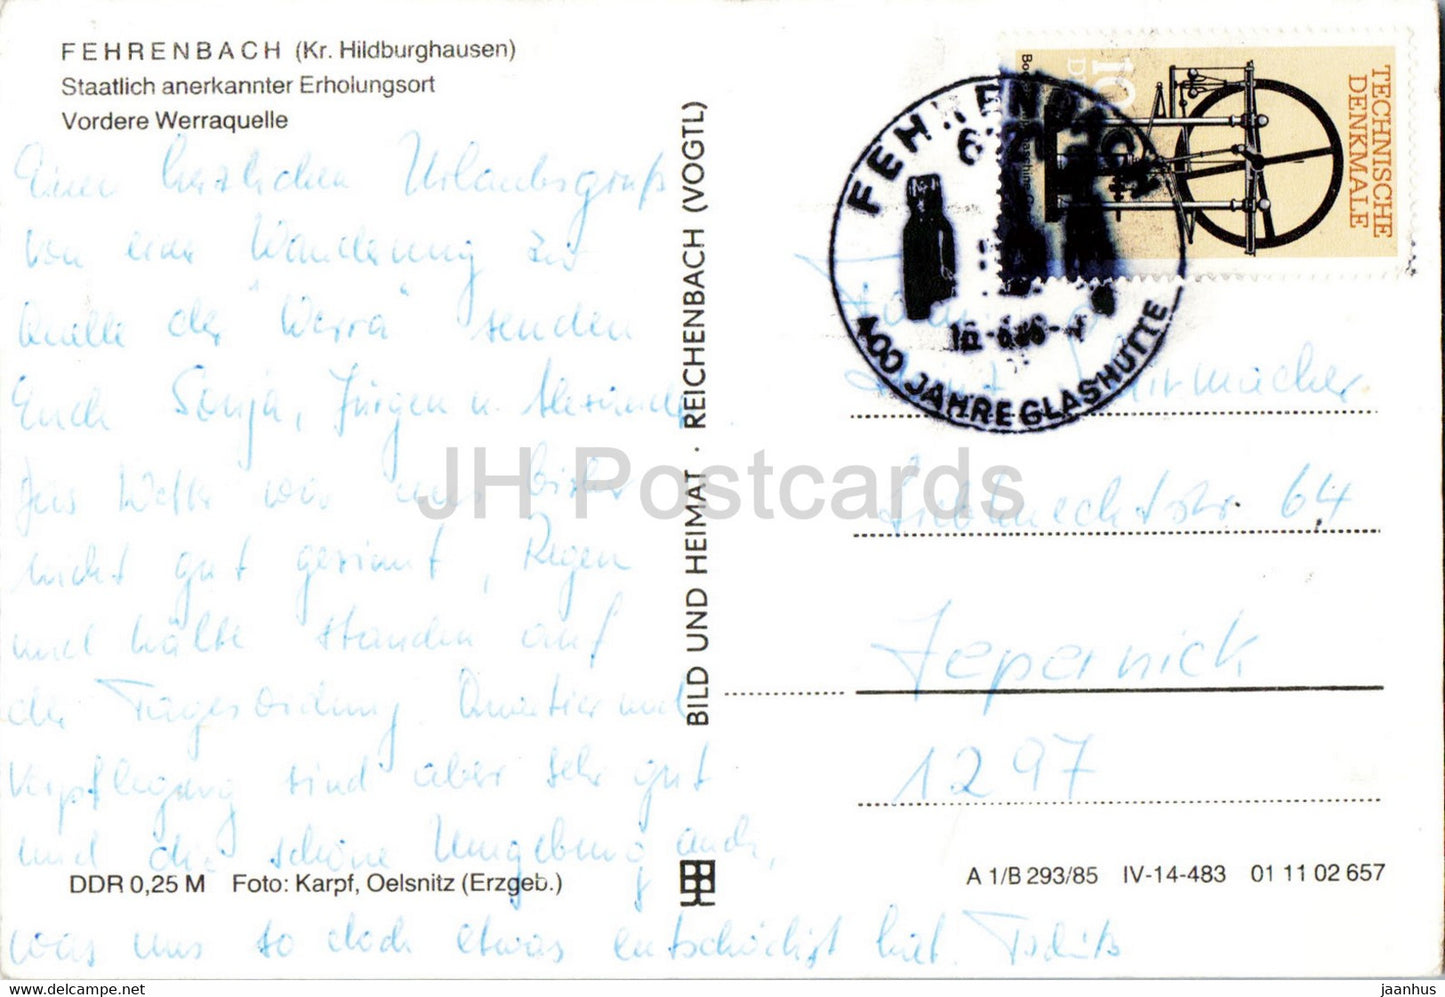 FEHRENBACH (Kr. Hildburghausen)
Staatlich anerkannter Erholungsort
Vordere Werraquelle
Einen herzlichen Urlaubsgruß
von einer Wanderung zur
Quelle der "Werra" senden
Euch Sonja, Jürgen u.
Das Wetter war uns bisher
nicht gut gesinnt, Regen
und Kälte standen auf
der Tagesordnung. Quartier und
Verpflegung sind aber sehr gut
und die schöne Umgebung auch,
was uns so doch etwas entschädigt hat. Tschüß
DDR 0,25 M Foto: Karpf, Oelsnitz (Erzgeb.)
BILD UND HEIMAT · REICHENBACH (VOGTL)
TECHNISCHE
DENKMALE
10
FEHRENBACH
400 JAHRE GLASHÜTTE
Liebknechtstr. 64
Zepernick
1297
A 1/B 293/85 IV-14-483 01 11 02 657
JH Postcards
hipstamp.com/store/jaanhus